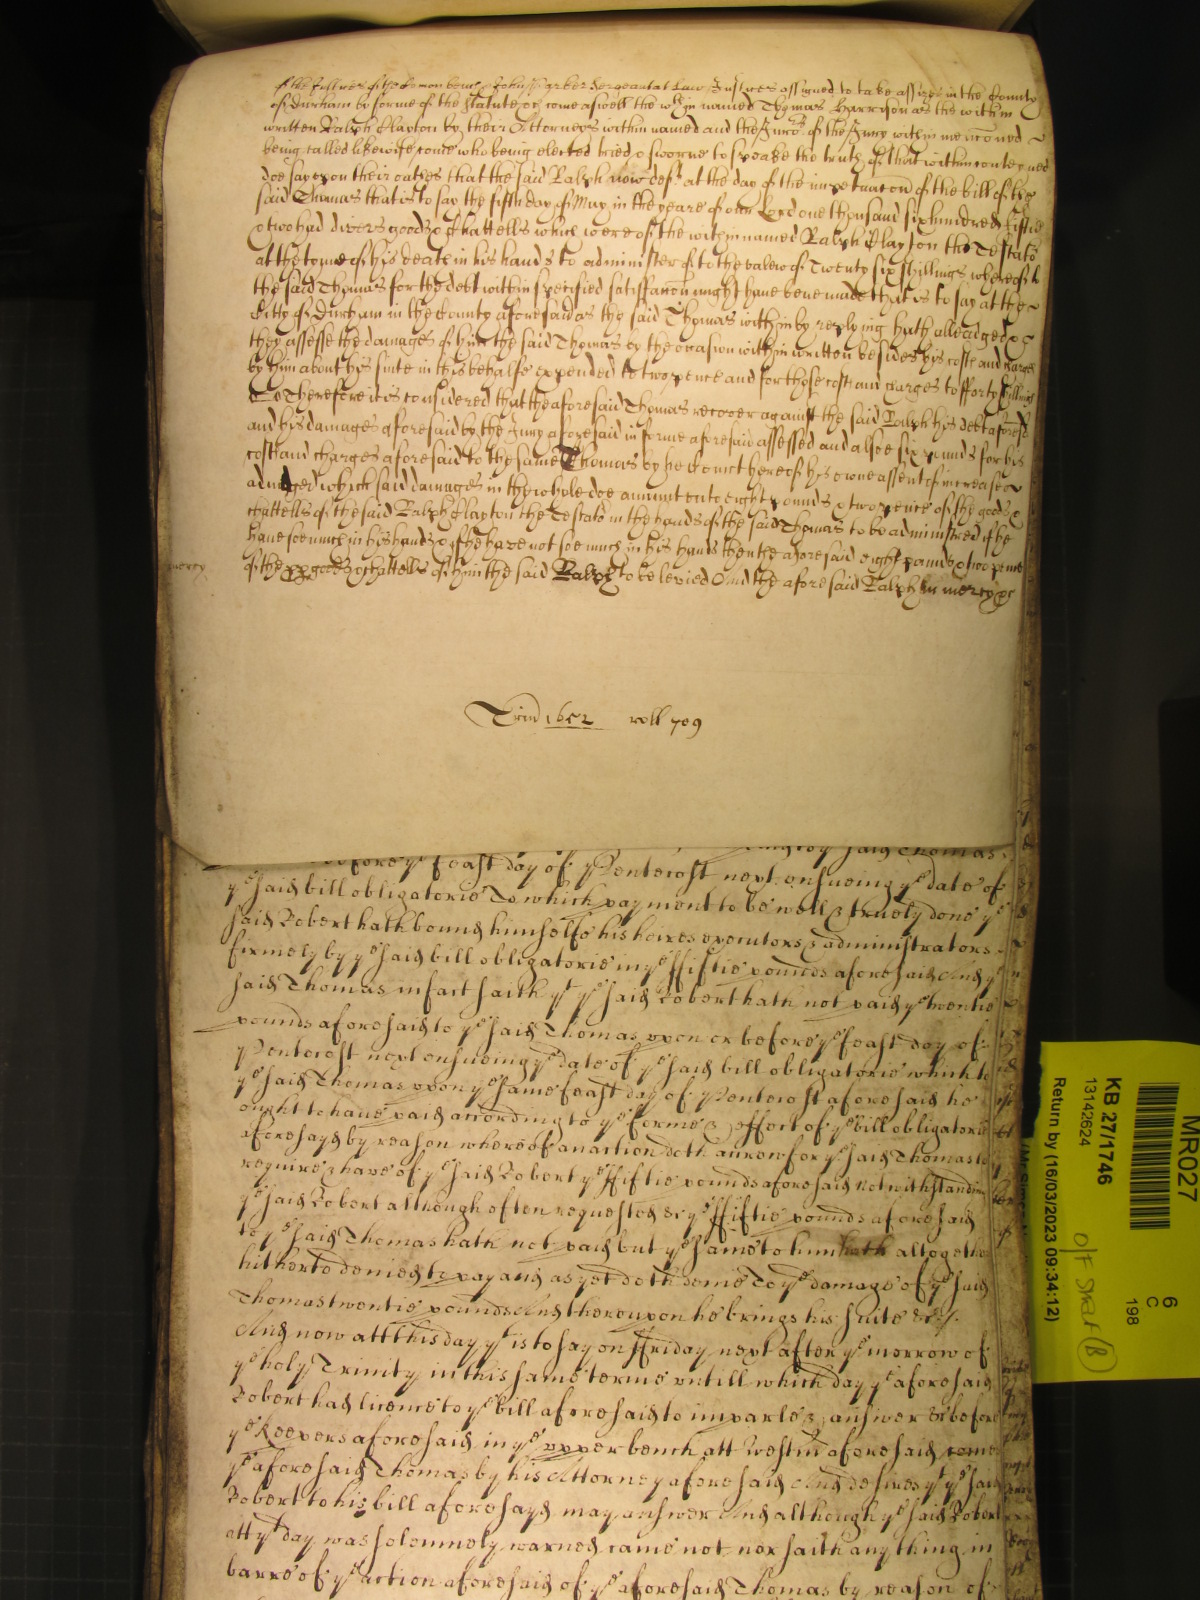 of the Justices of the Comon bench John Parker Sergeant at Law Justices assigned to take assizes in the County
of Durham by forme of the statute &c come aswell the wthin named Thomas Harryson as the within
written Ralph Clayton by their Attorneys within named and the Juro's of the Jury within menconed
being called likewise come who being elected tried & sworne to speake the truth of that within conteyned
doe say upon their oathes that the said Ralph now deft at the day of the impetracon of the bill of the
said Thomas that is to say the fifth day of May in the yeare of our Lord one thousand six hundred fiftie
& two had divers goods & Chattells which were of the within named Ralph Clayton the Testato'
at the tyme of his death in his hands to administer to the valew of Twenty six shillings whereof to
the said Thomas for the debt within specified satisfaccon might have bene made that is to say at the
Citty of Durham in the County aforesaid as the said Thomas within by replying hath alleadged &c
they assesse the damages of him the said Thomas by the occasion within written besides his costs and charges
by him about his suite in this behalfe expended to twopence and for those costs and charges to forty shillings
Therefore it is considered that the aforesaid Thomas recover against the said Ralph his debt aforesd
and his damages aforesaid by the Jury aforesaid in forme aforesaid assessed and alsoe six pounds for his
costs and charges aforesaid to the same Thomas by the Court here of his owne assent of increase
adiudged which said damages in the whole doe amount to eight pounds & twopence of the goods &
chattells of the said Ralph Clayton the Testato' in the hands of the said Thomas to be administred if he
have soe much in his hands & if he have not soe much in his hands then the aforesaid eight pounds & twopence
mercy
of the ppr goods & chattells of him the said Ralph to be levied And the aforesaid Ralph in mercy &c
Trin 1652 roll 709
before ye feast day of Pentecost next ensueing ye date of
ye said bill obligatorie To which payment to be well & truely done ye
said Robert hath bound himselfe his heires executors & administrators
firmely by ye said bill obligatorie in ye ffiftie pounds aforesaid And ye
said Thomas in fact saith yt ye said Robert hath not paid ye twentie
pounds aforesaid to ye said Thomas upon or before ye feast day of
Pentecost next ensueing ye date of ye said bill obligatorie which to
ye said Thomas upon ye same feast day of Pentecost aforesaid he
ought to have paid according to ye forme & effect of ye bill obligatorie
aforesayd by reason whereof an action doth accrow for ye said Thomas to
require & have of ye said Robert ye ffiftie pounds aforesaid Notwithstanding
ye said Robert although often requested &c ye ffiftie pounds aforesaid
to ye said Thomas hath not paid but ye same to him hath altogether
hitherto denied to pay and as yet doth denie To ye damage of ye said
Thomas twentie pounds And thereupon he brings his suite &c
And now att this day yt is to say on ffriday next after ye morrow of
ye holy Trinity in this same terme untill which day ye aforesaid
Robert had licence to ye bill aforesaid to imparle & answer &c before
ye Keepers aforesaid in ye upper bench att Westm aforesaid come
ye aforesaid Thomas by his Attorney aforesaid And desires yt ye said
Robert to his bill aforesayd may answer And although ye said Robert
att yt day was solemnely warned came not nor saith any thing in
barre of ye action aforesaid of ye aforesaid Thomas by reason of
MR027
6
C
198
KB 27/1746
13142624
Return by (16/03/2023 09:34:12)
O/F SHELF (B)